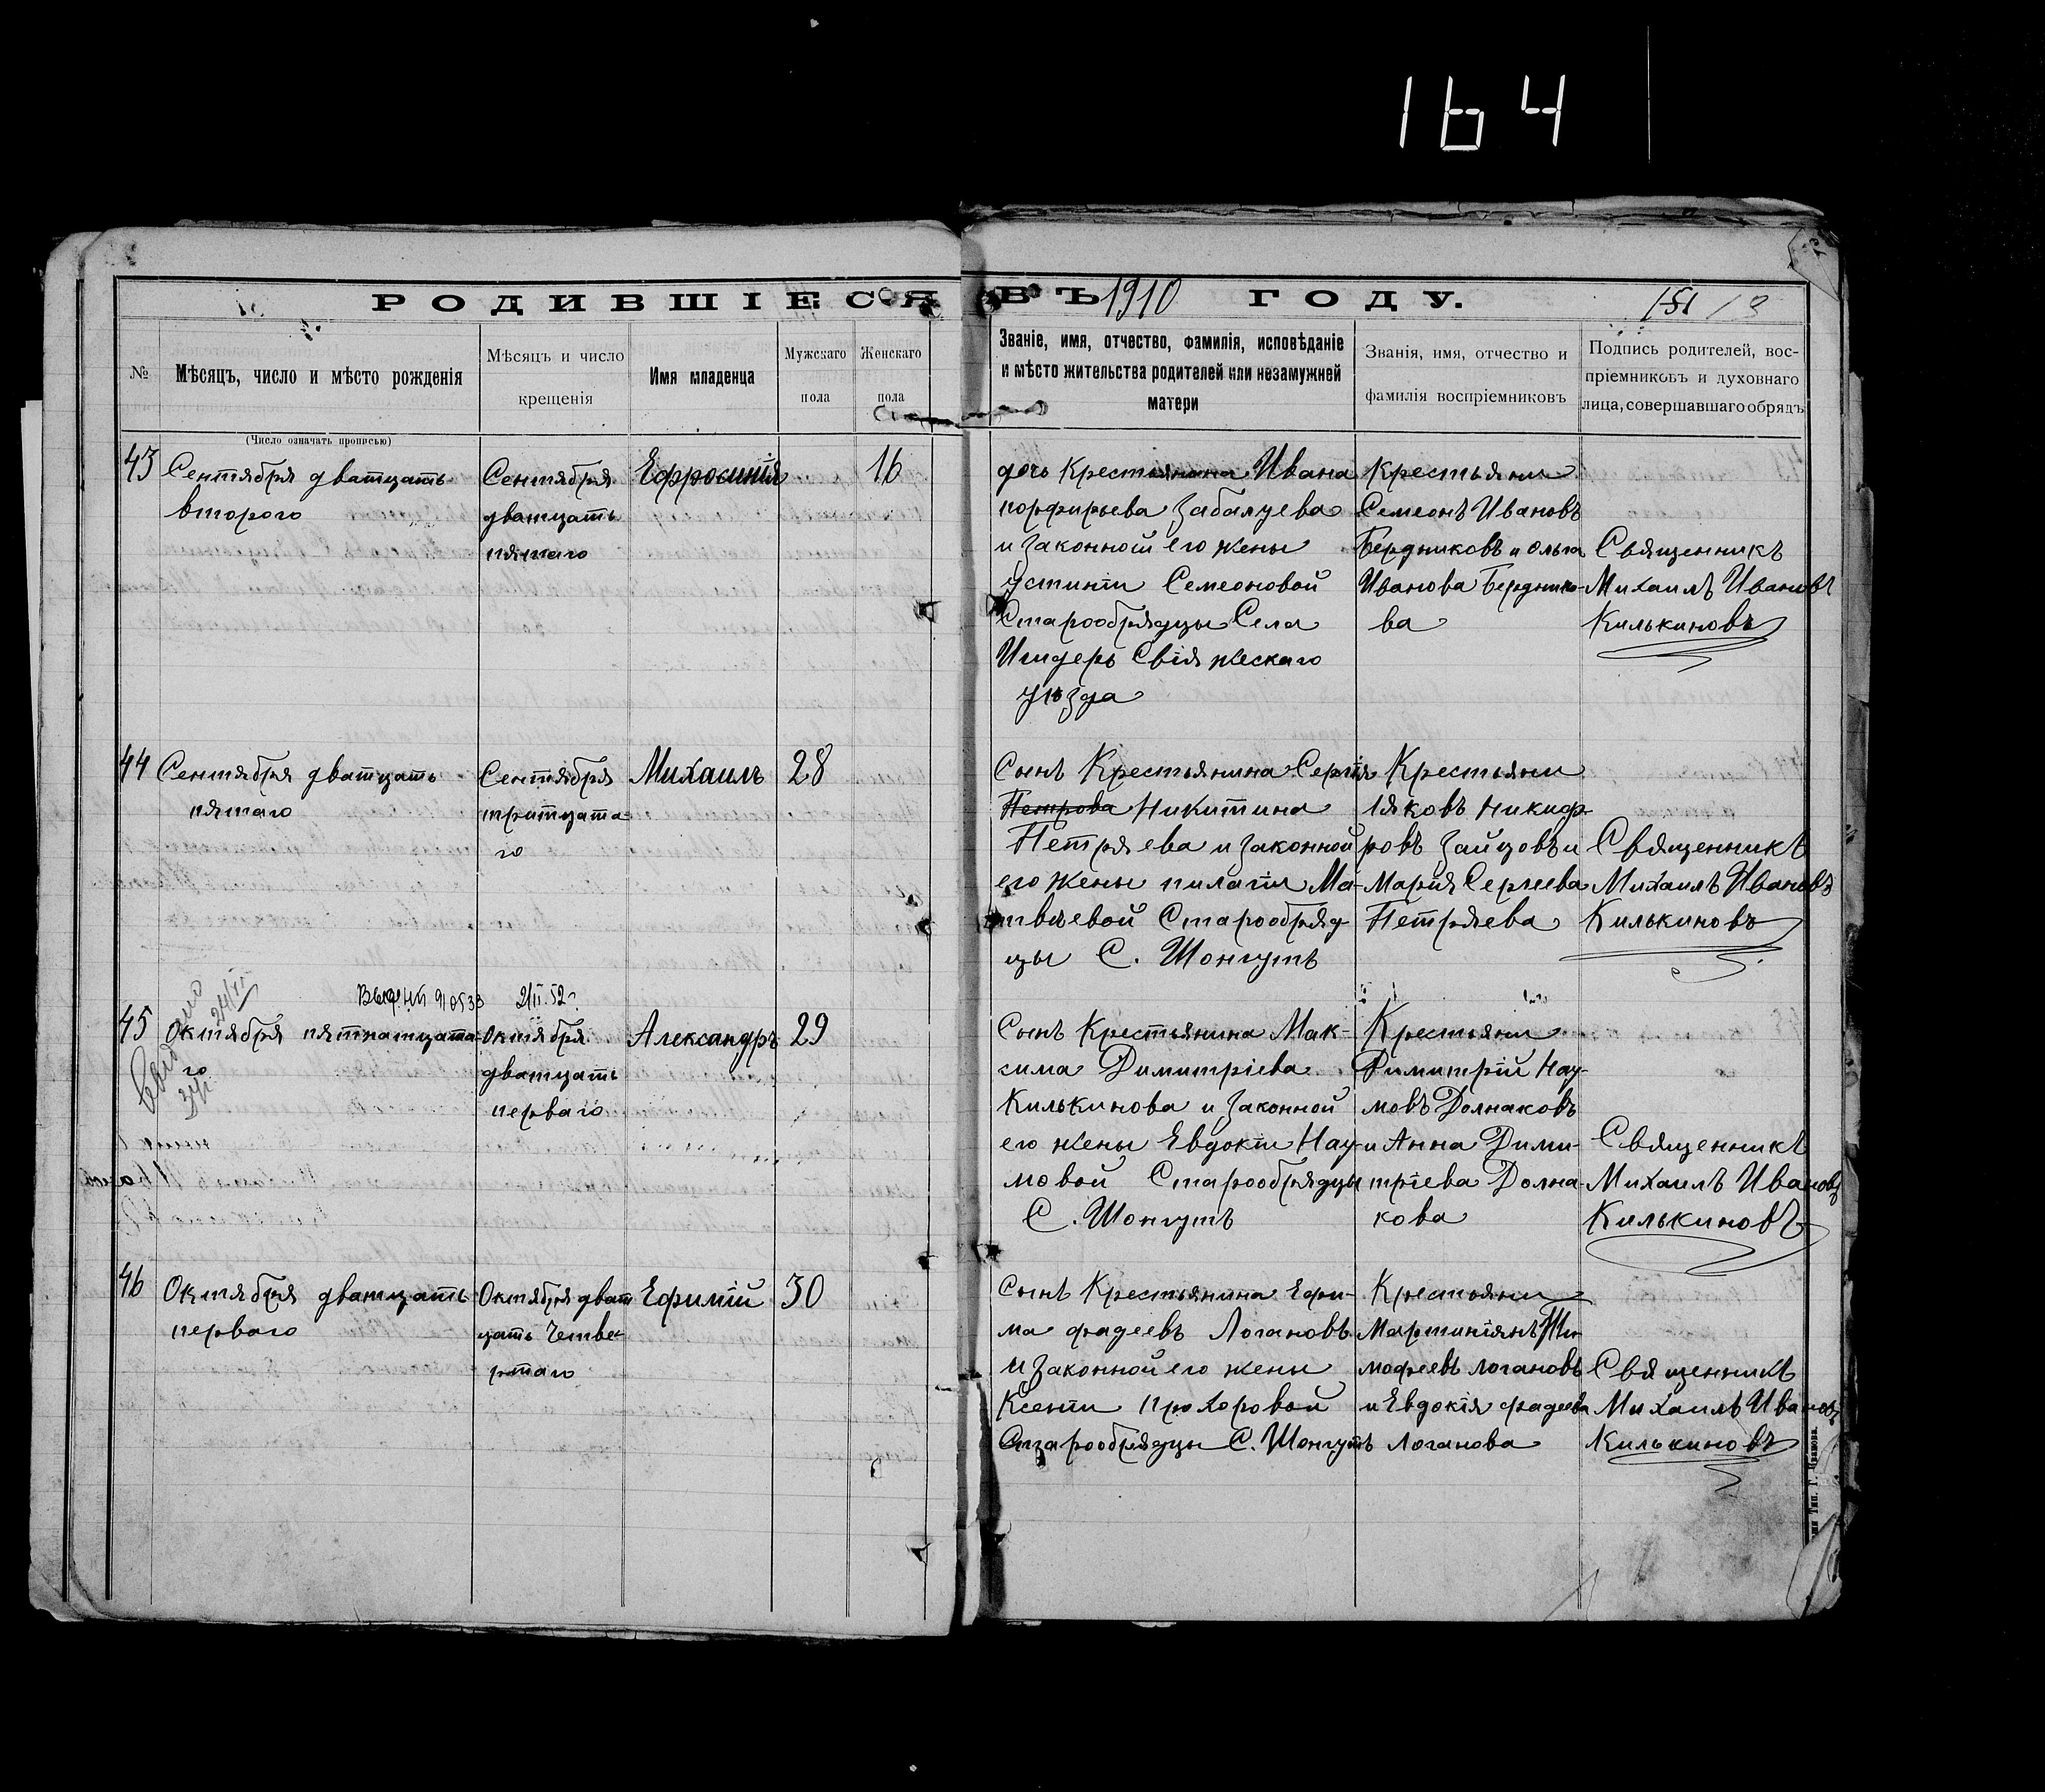 164
РОДИВШІЕСЯ ВЪ 1910 ГОДУ.
151
№
Мѣсяцъ, число и мѣсто рожденія
(Число означать прописью)
Мѣсяцъ и число
крещенія
Имя младенца
Мужскаго
пола
Женскаго
пола
Званіе, имя, отчество, фамилія, исповѣданіе
и мѣсто жительства родителей или незамужней
матери
Званія, имя, отчество и
фамилія воспріемниковъ
Подпись родителей, вос-
пріемниковъ и духовнаго
лица, совершавшаго обрядъ
43
Сентября дватцать
второго
Сентября
дватцать
пятаго
Ефросинія
16
дочь Крестьянина Ивана
порфирьева Забалуева
и законной его жены
Устиніи Семеоновой
Старообрядцы Села
Ширдерь Свіяжескаго
уѣзда
Крестьяни
Семеонъ Ивановъ
Бердниковъ и Ольга
Иванова Бердніко-
ва
Священникъ
Михаилъ Ивановъ
Килькиновъ
44
Сентября дватцать
пятаго
Сентября
тритцата-
го
Михаилъ
28
Сынъ Крестьянина Сергія
Петрова Никитина
Петряева и законной
его жены пилагіи Ма-
твѣевой Старообряд
цы С. Шонгутъ
Крестьяни
Іяковъ Никиф
ровъ Зайцовъ и
Марія Сергеева
Петряева
Священникъ
Михаилъ Ивановъ
Килькиновъ
2/II.52г.
45
Октября пятнатцата-
го
Октября
дватцать
перваго
Александръ
29
Сынъ Крестьянина Мак-
сима Димитріева
Килькинова и законной
его жены Евдокіи Нау-
мовой Старообрядцы
С. Шонгутъ
Крестьяни
Димитрій Нау-
мовъ Долнаковъ
и Анна Дими-
тріева Долна-
кова
Священникъ
Михаилъ Ивановъ
Килькиновъ
46
Октября дватцать
перваго
Октября дват
цать Четве-
ртаго
Ефимій
30
Сынъ Крестьянина Ефи-
ма фадеевъ Логановъ
и законной его жены
Ксеніи прохоровой
Старообрядцы С. Шонгутъ
Крестьяни
Мартиніянъ Ти-
мофеевъ логановъ
и Евдокія фадеева
Логанова
Священникъ
Михаилъ Ивановъ
Килькиновъ
Тип. Г.